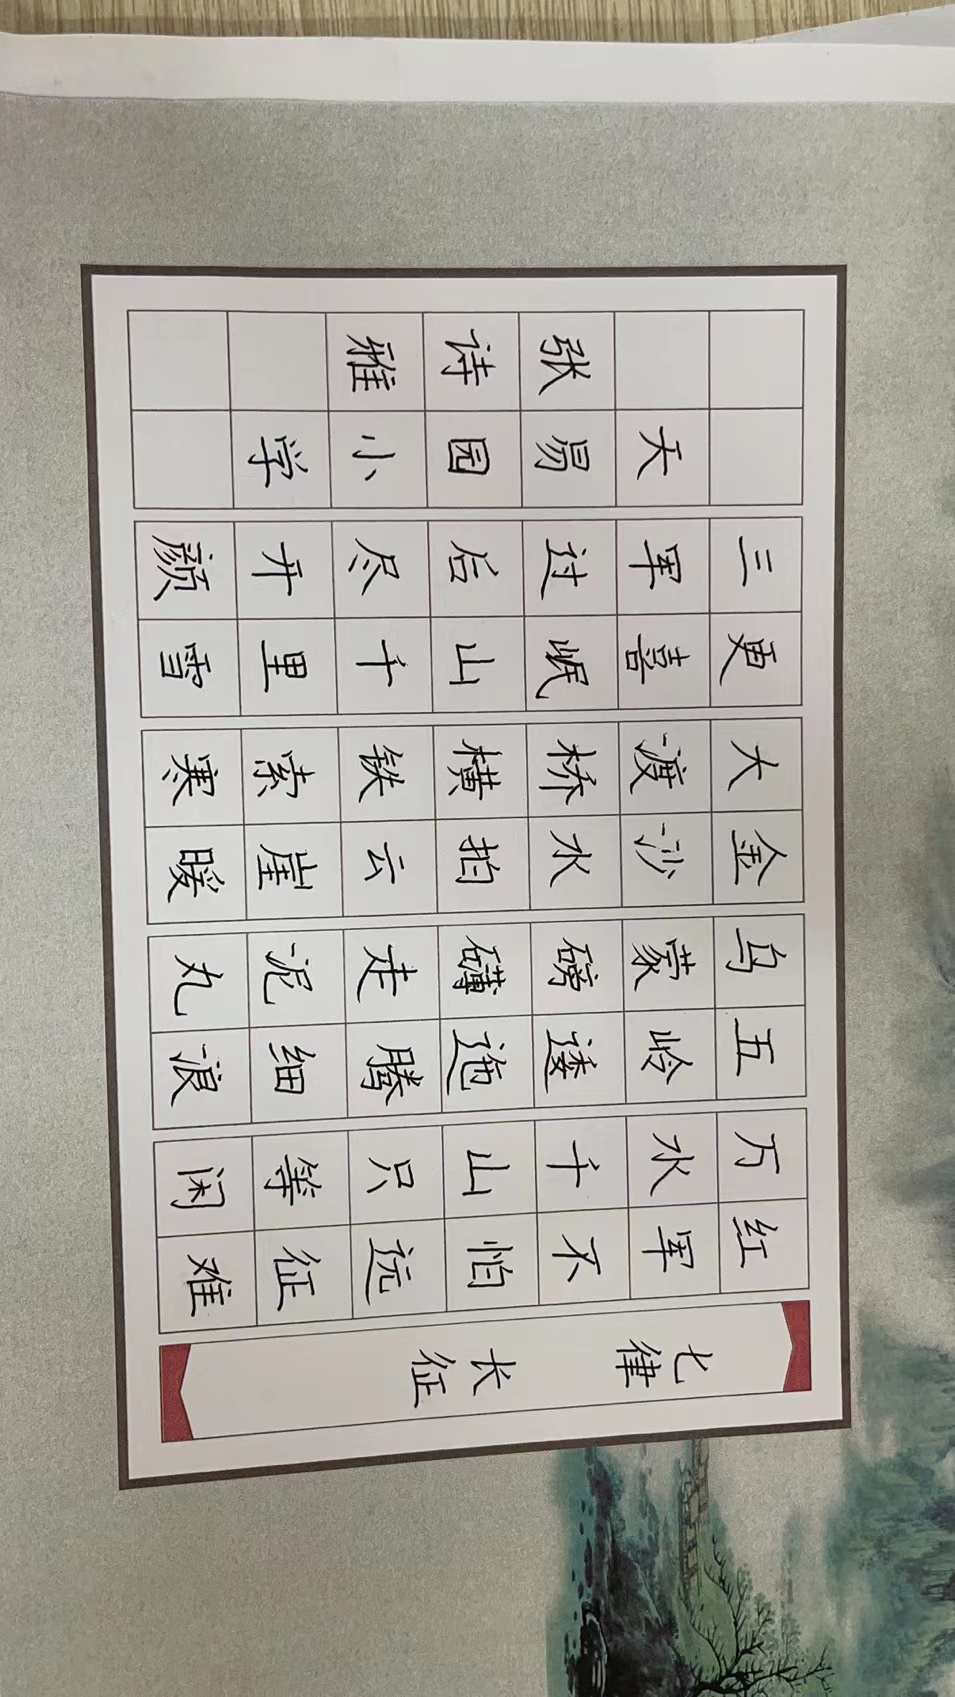 七律 长征
红军不怕远征难
万水千山只等闲
五岭逶迤腾细浪
乌蒙磅礴走泥丸
金沙水拍云崖暖
大渡桥横铁索寒
更喜岷山千里雪
三军过后尽开颜
天易园小学
张诗雅